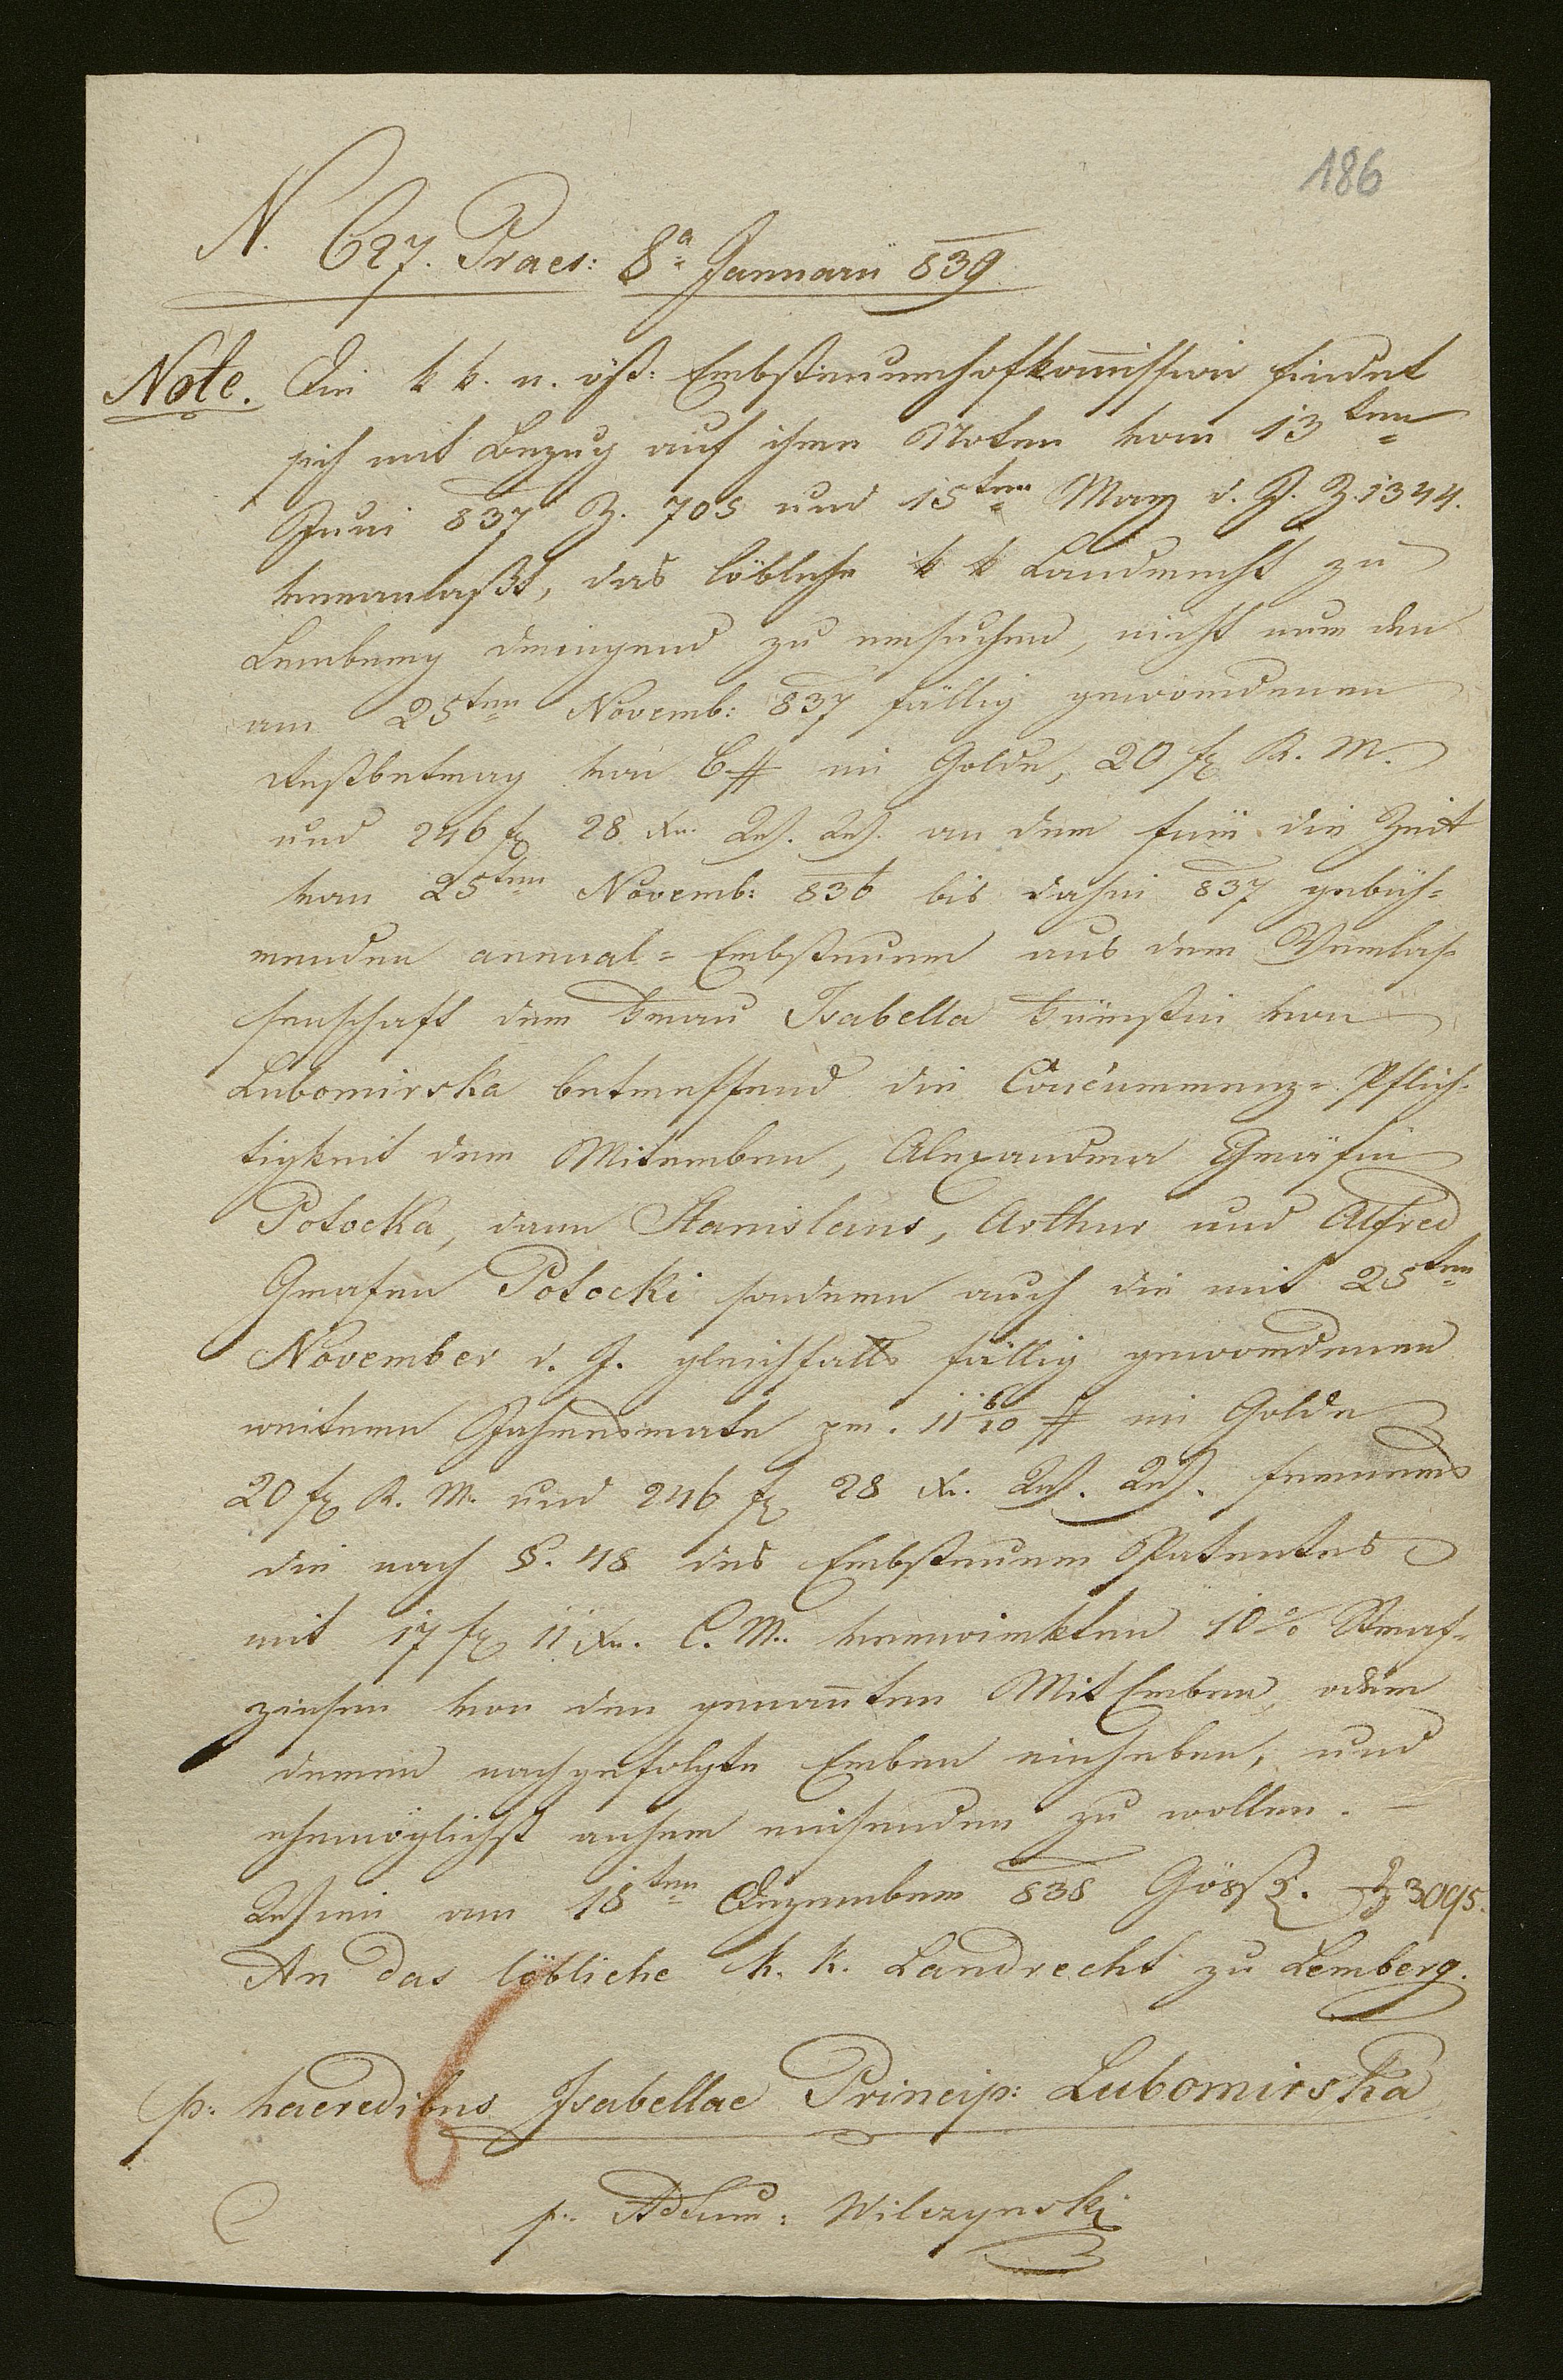 186
N. 627. Praes: 8a Januarii 839
Note. Die k k. n. öst: Erbsteuerhofkom̅ission findet
sich mit Bezug auf ihre Noten vom 13ten
Juni 837 Z. 705 und 15ten May d. J. Z. 1344.
veranlaßt, das löbliche k k Landrecht zu
Lemberg dringend zu ersuchen, nicht nur den
am 25ten Novemb: 837 fällig gewordenen
Restbetrag von 6 # in Golde, 20 f K. M.
und 246 f 28 Xr. W. W. an der für die Zeit
von 25ten Novemb: 836 bis dahin 837 gebüh=
renden annual=Erbsteuer aus der Verlas=
senschaft der Frau Isabella Fürstin von
Lubomirska betreffend die Concurrenz=Pflich=
tigkeit der Miterben, Alexandra Gräfin
Potocka, dann Stanislaus, Arthur und Alfred
Grafen Potocki sondern auch die mit 25ten
November d. J. gleichfalls fällig gewordene
weitere Jahresrate pr. 11 6/10 # in Golde
20 f K. M. und 246 f 28 Xr. W. W. ferners
die nach §. 48 des Erbsteuer Patentes
mit 17 f 11 Xr. C. M. verwirkten 10% Straf=
zinsen von den genan̅ten MitErben, oder
deren nachgefolgte Erben einheben, und
ehemöglichst anher einsenden zu wollen. –
Wien am 18ten Dezember 838 Z 3095.
An das löbliche k. k. Landrecht zu Lemberg.
p. haeredibus Isabellae Princip: Lubomirska
p. Adum: Wilczynski